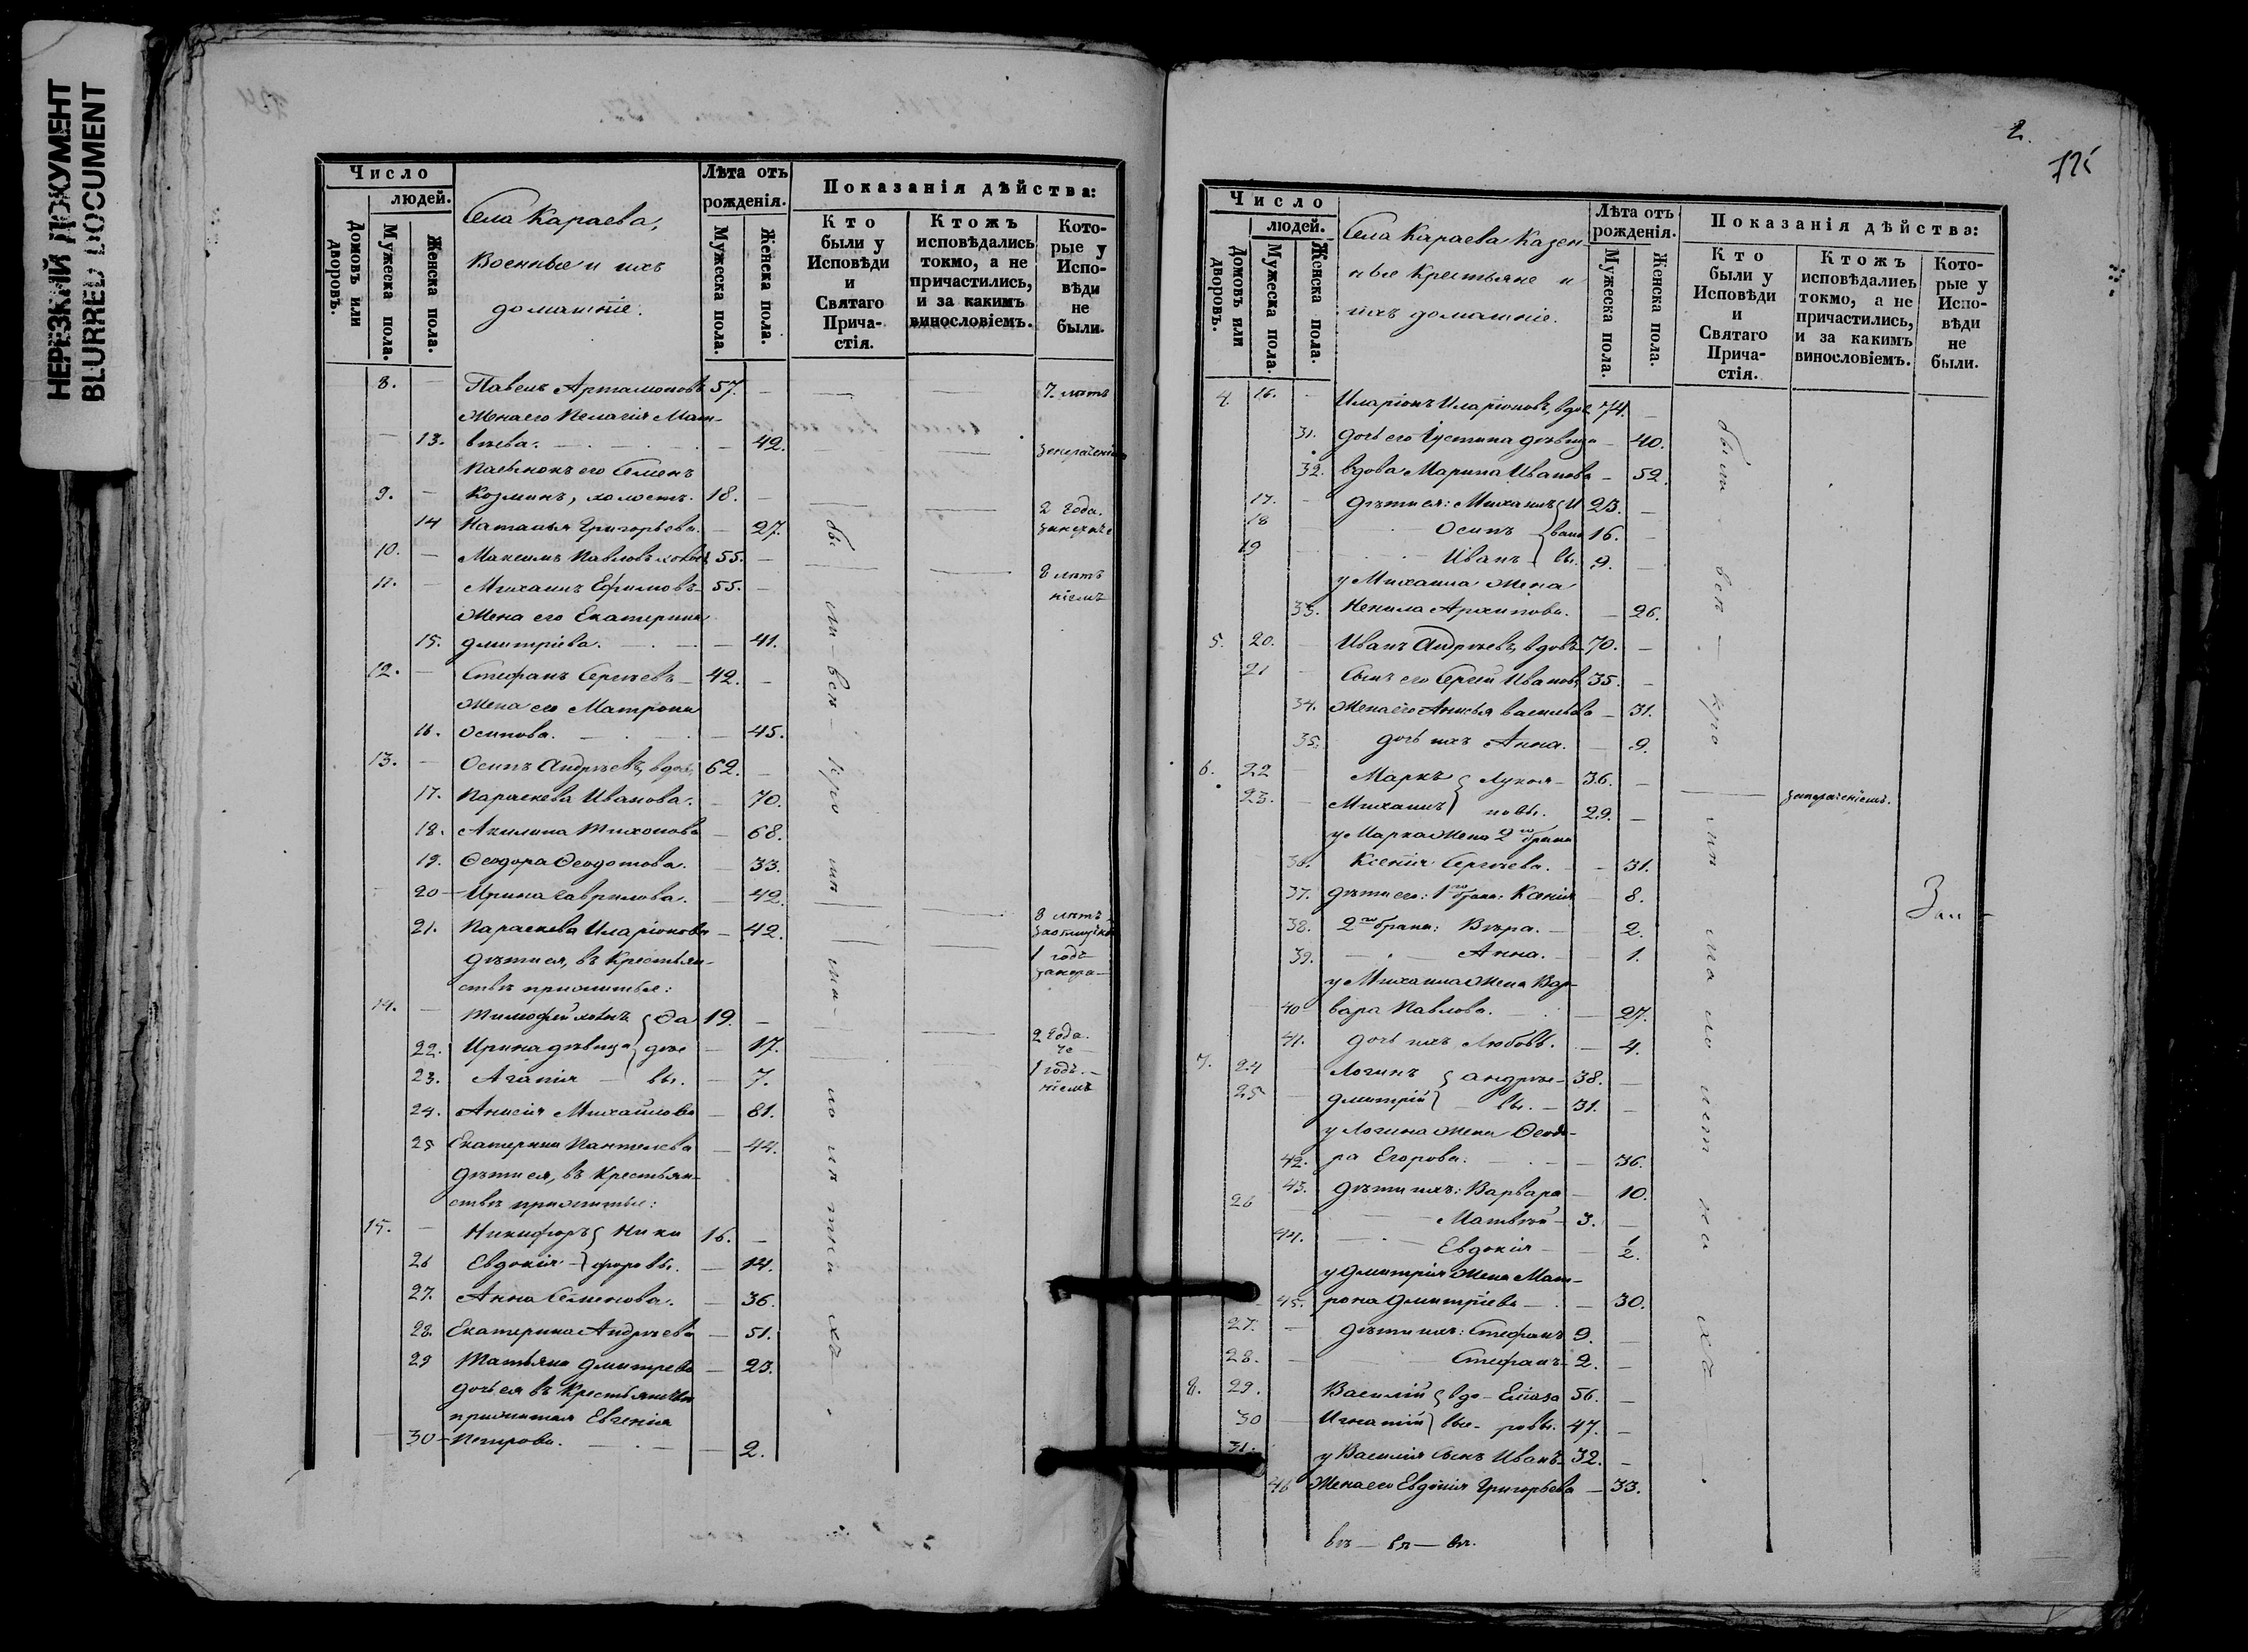 НЕРЕЗКИЙ ДОКУМЕНТ
BLURRED DOCUMENT
Число
людей.
Домовъ или дворовъ.
Мужеска пола.
Женска пола.
Села Караева,
Военные и ихъ
домашніе.
Лѣта отъ
рожденія.
Мужеска пола.
Женска пола.
Показанія дѣйства:
Кто были у Исповѣди и Святаго Прича-стія.
Ктожъ исповѣдались токмо, а не причастились, и за какимъ винословіемъ.
Кото-рые у Испо-вѣди не были.
8. — Павелъ Артамоновъ 57. — 7. лѣтъ
Жена его Пелагія Мат-
13. вѣева. — 42.
Племянокъ его Семенъ
9. — Козминъ, холостъ. 18. —
2 года.
14 Наталья Григорьева. — 27.
10. — Максимъ Павловъ 55. —
8 лѣтъ
11. — Михаилъ Ефимовъ 55. —
ніемъ
Жена его Екатерина
15. Дмитріева. — 41.
12. — Стефанъ Сергѣевъ — 42. —
Жена его Матрона
16. Осипова. — 45.
13. — Осипъ Андреевъ, вдов. 62. —
17. Параскева Иванова. — 70.
18. Акилина Тихонова — 68.
19. Ѳеодора Ѳеодотова. — 33.
20 — Ирина Гаврилова. — 42.
8 лѣтъ
21. Параскева Иларіонова — 42.
1 годъ
дѣти ея, въ крестьян-
ствѣ прижитые:
14. — Тимофей 19. —
2 года.
22. Ирина дѣвица — 17.
1 годъ. —
23. Агапія — вы. — 7.
ніемъ
24. Анисія Михайлова — 61.
25 Екатерина Пантелева — 44.
дѣти ея, въ крестьян-
ствѣ прижитые:
15. — Никифоръ Ники 16. —
26 Евдокія форовы. — 14.
27. Анна Семенова. — 36.
28. Екатерина Андреева — 51.
29 Татьяна Дмитрева — 23.
дочь ея въ крестьянствѣ
прижитая Евгенія
30 — Петрова. — 2.
2.
Число
людей.
Домовъ или дворовъ.
Мужеска пола.
Женска пола.
Села Караева Казен-
ные крестьяне и
ихъ домашніе.
Лѣта отъ
рожденія.
Мужеска пола.
Женска пола.
Показанія дѣйства:
Кто были у Исповѣди и Святаго Прича-стія.
Ктожъ исповѣдались токмо, а не причастились, и за какимъ винословіемъ.
Кото-рые у Испо-вѣди не были.
4. 16. — Иларіонъ Иларіоновъ, вдов. 74. —
31. дочь его Іустина дѣвица — 40.
32. вдова Марина Иванова — 52.
17. — дѣти ея: Михаилъ И 23. —
18 Осипъ вано 16. —
19 Иванъ вы. 9. —
у Михаила жена
33. Ненила Архипова. — 26.
5. 20. — Иванъ Андреевъ, вдовъ 70. —
21 — Сынъ его Сергей Ивановъ 35. —
34. Жена его Анисья Васильева — 31.
35. дочь ихъ Анна. — 9.
6. 22 — Маркъ Лукоя- 36. —
23. — Михаилъ новы. 29. — за нерачениемъ.
у Марка жена 2го брака
36. Ксенія Сергѣева. — 31.
37. дѣти его: 1го брака: Ксенія — 8.
38. 2го брака: Вѣра. — 2.
39. — Анна. — 1.
у Михаила жена Вар-
40 вара Павлова. — 27.
41. дочь ихъ Любовь. — 4.
7. 24 — Логинъ Андрее- 38. —
25 — Дмитрій вы. — 31. —
у Логина жена Ѳеодо-
42. ра Егорова. — 36.
43. дѣти ихъ: Варвара — 10.
26 — Матвѣй — 3. —
44. — Евдокія — 1/2.
у Дмитрія жена Мат-
45. рона Дмитріева — 30.
27. — дѣти ихъ: Стефанъ 9. —
28. — Стефанъ — 2. —
8. 29. Василій вдо- Еліаза 56. —
30 — Игнатій вые- ровы. 47. —
31. у Василія сынъ Иванъ 32. —
46 Жена его Евдокія Григорьева — 33.